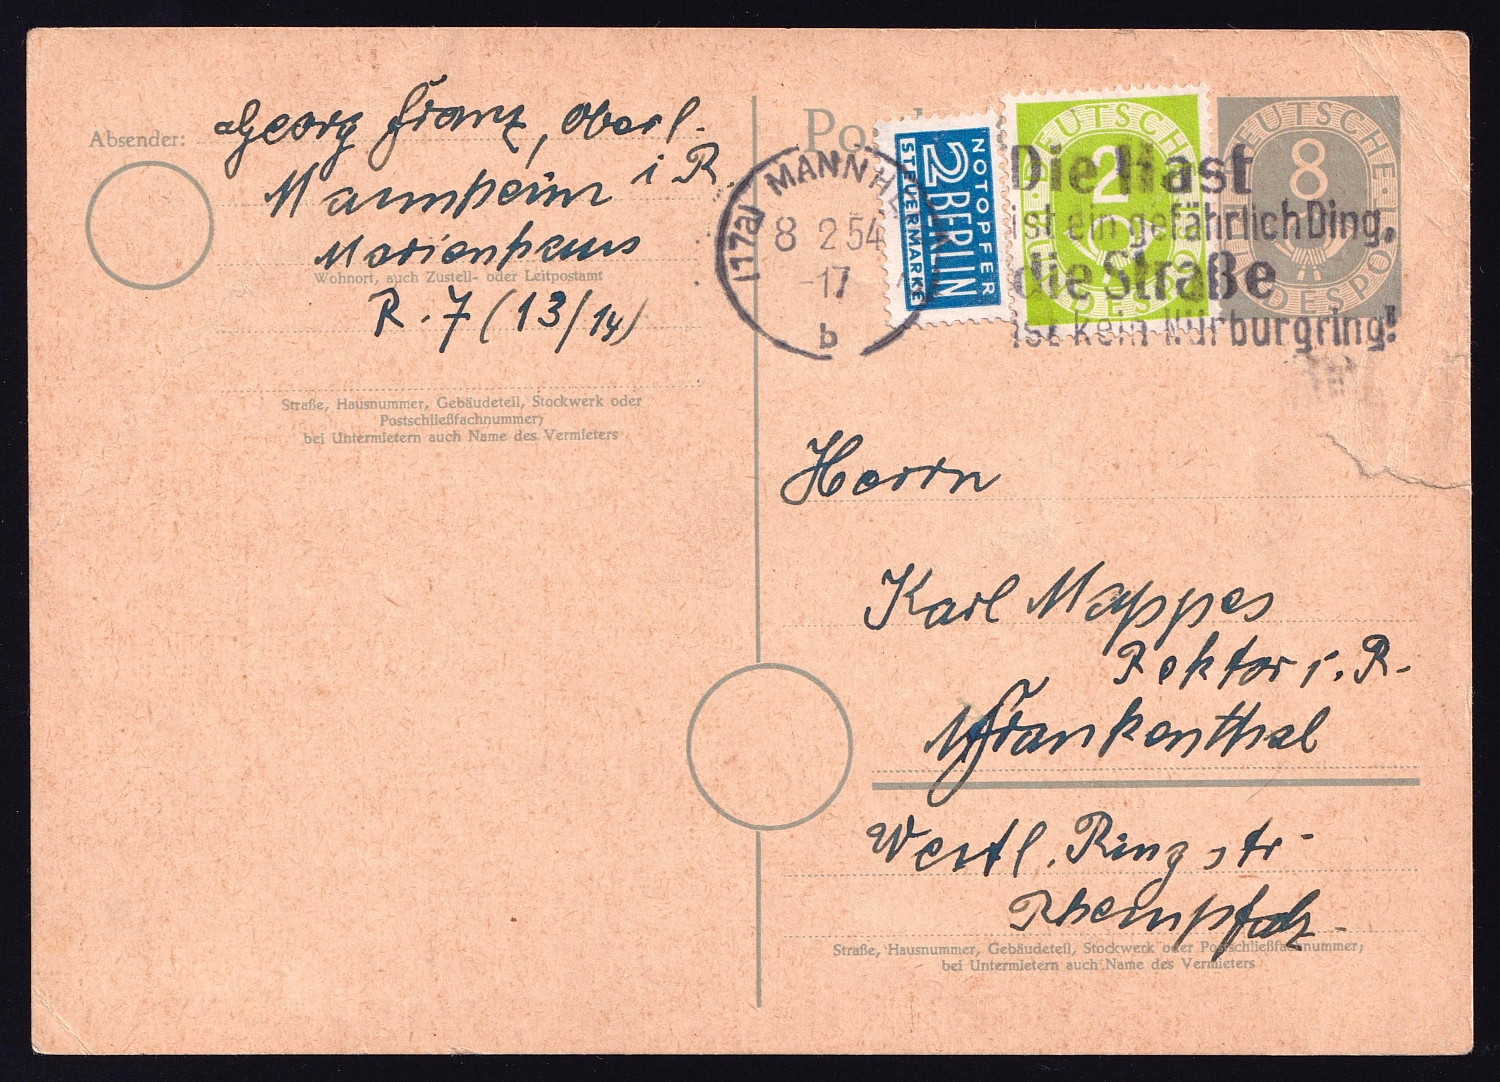 Absender:
Georg Franz, Oberl.
Mannheim i R.
Marienhaus
Wohnort, auch Zustell- oder Leitpostamt
R. 7 (13/14)
Straße, Hausnummer, Gebäudeteil, Stockwerk oder
Postschließfachnummer;
bei Untermietern auch Name des Vermieters
(17a) MANNHE
8 2 54
-17
b
NOTOPFER
2 BERLIN
STEUERMARKE
DEUTSCHE
BUNDESPOST
2
DEUTSCHE
BUNDESPOST
8
Die Hast
ist ein gefährlich Ding,
die Straße
ist kein Nürburgring!"
Herrn
Karl Mappes
Rektor i. R.
Frankenthal
Westl. Ringstr
Rheinpfalz.
Straße, Hausnummer, Gebäudeteil, Stockwerk oder Postschließfachnummer;
bei Untermietern auch Name des Vermieters